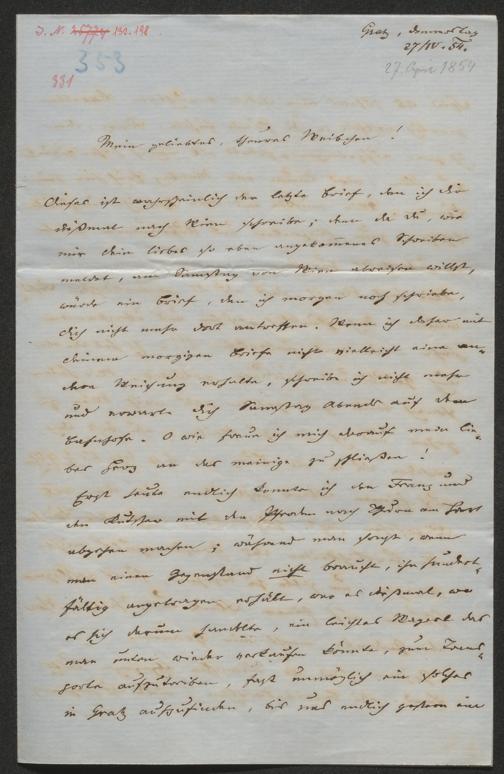 J. N. 25774 132.198
353
331
Gratz, Donnerstag
27/IV. 54.
27. April 1854
Mein geliebtes, theures Weibchen!
Dieses ist wahrscheinlich der letzte Brief, den ich dir
dießmal nach Wien schreibe; denn da du, wie
mir dein liebes so eben angekommenes Schreiben
meldet, am Samstag von Wien abreisen willst,
würde ein Brief, den ich morgen noch schriebe,
dich nicht mehr dort antreffen. Wenn ich daher mit
deinem morgigen Briefe nicht vielleicht eine an-
dere Weisung erhalte, schreibe ich nicht mehr
und erwarte dich Samstag Abends auf dem
Bahnhofe. O wie freue ich mich darauf mein lie-
bes Herz an das meinige zu schließen!
Erst heute endlich konnte ich den Franz und
den Kutscher mit den Pferden nach Thurn am Hart
abgehen machen; während man sonst, wenn
man einen Gegenstand nicht braucht, ihn hundert-
fältig angetragen erhält, war es dießmal, wo
es sich darum handelte, ein leichtes Wagerl das
man unten wieder verkaufen könnte, zum Trans-
porte aufzutreiben, fast unmöglich ein solches
in Gratz aufzufinden, bis uns endlich gestern ein